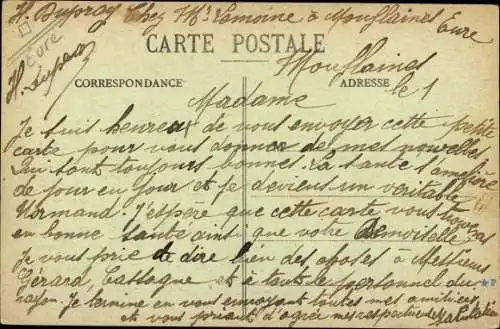 H. Dupray Chez Mr Lemoine à Mouflaines Eure
Eure
CARTE POSTALE
H. Dupray
Mouflaines
CORRESPONDANCE
ADRESSE
le 1
Madame
Je suis heureux de vous envoyer cette petite
carte pour vous donner de mes nouvelles
Qui sont toujours bonnes. La santé s'ameliore
de jour en jour et je deviens un veritable
Normand. J'espère que cette carte vous trouveras
en bonne santé ainsi que votre Demoiselle
Je vous prie de dire bien des choses à Messieurs
Gérard, Cassagne et à tout le personnel du
rayon. Je termine en vous envoyant toutes mes amitiées
et vous priant d'agréer mes respectueuses